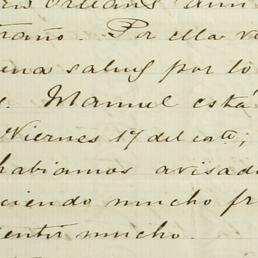 Orleans
traño. Por ella v
ena salud por lo
Manuel está
Viernes 17 del cote;
habiamos avisad
ciendo mucho fr
entir mucho.